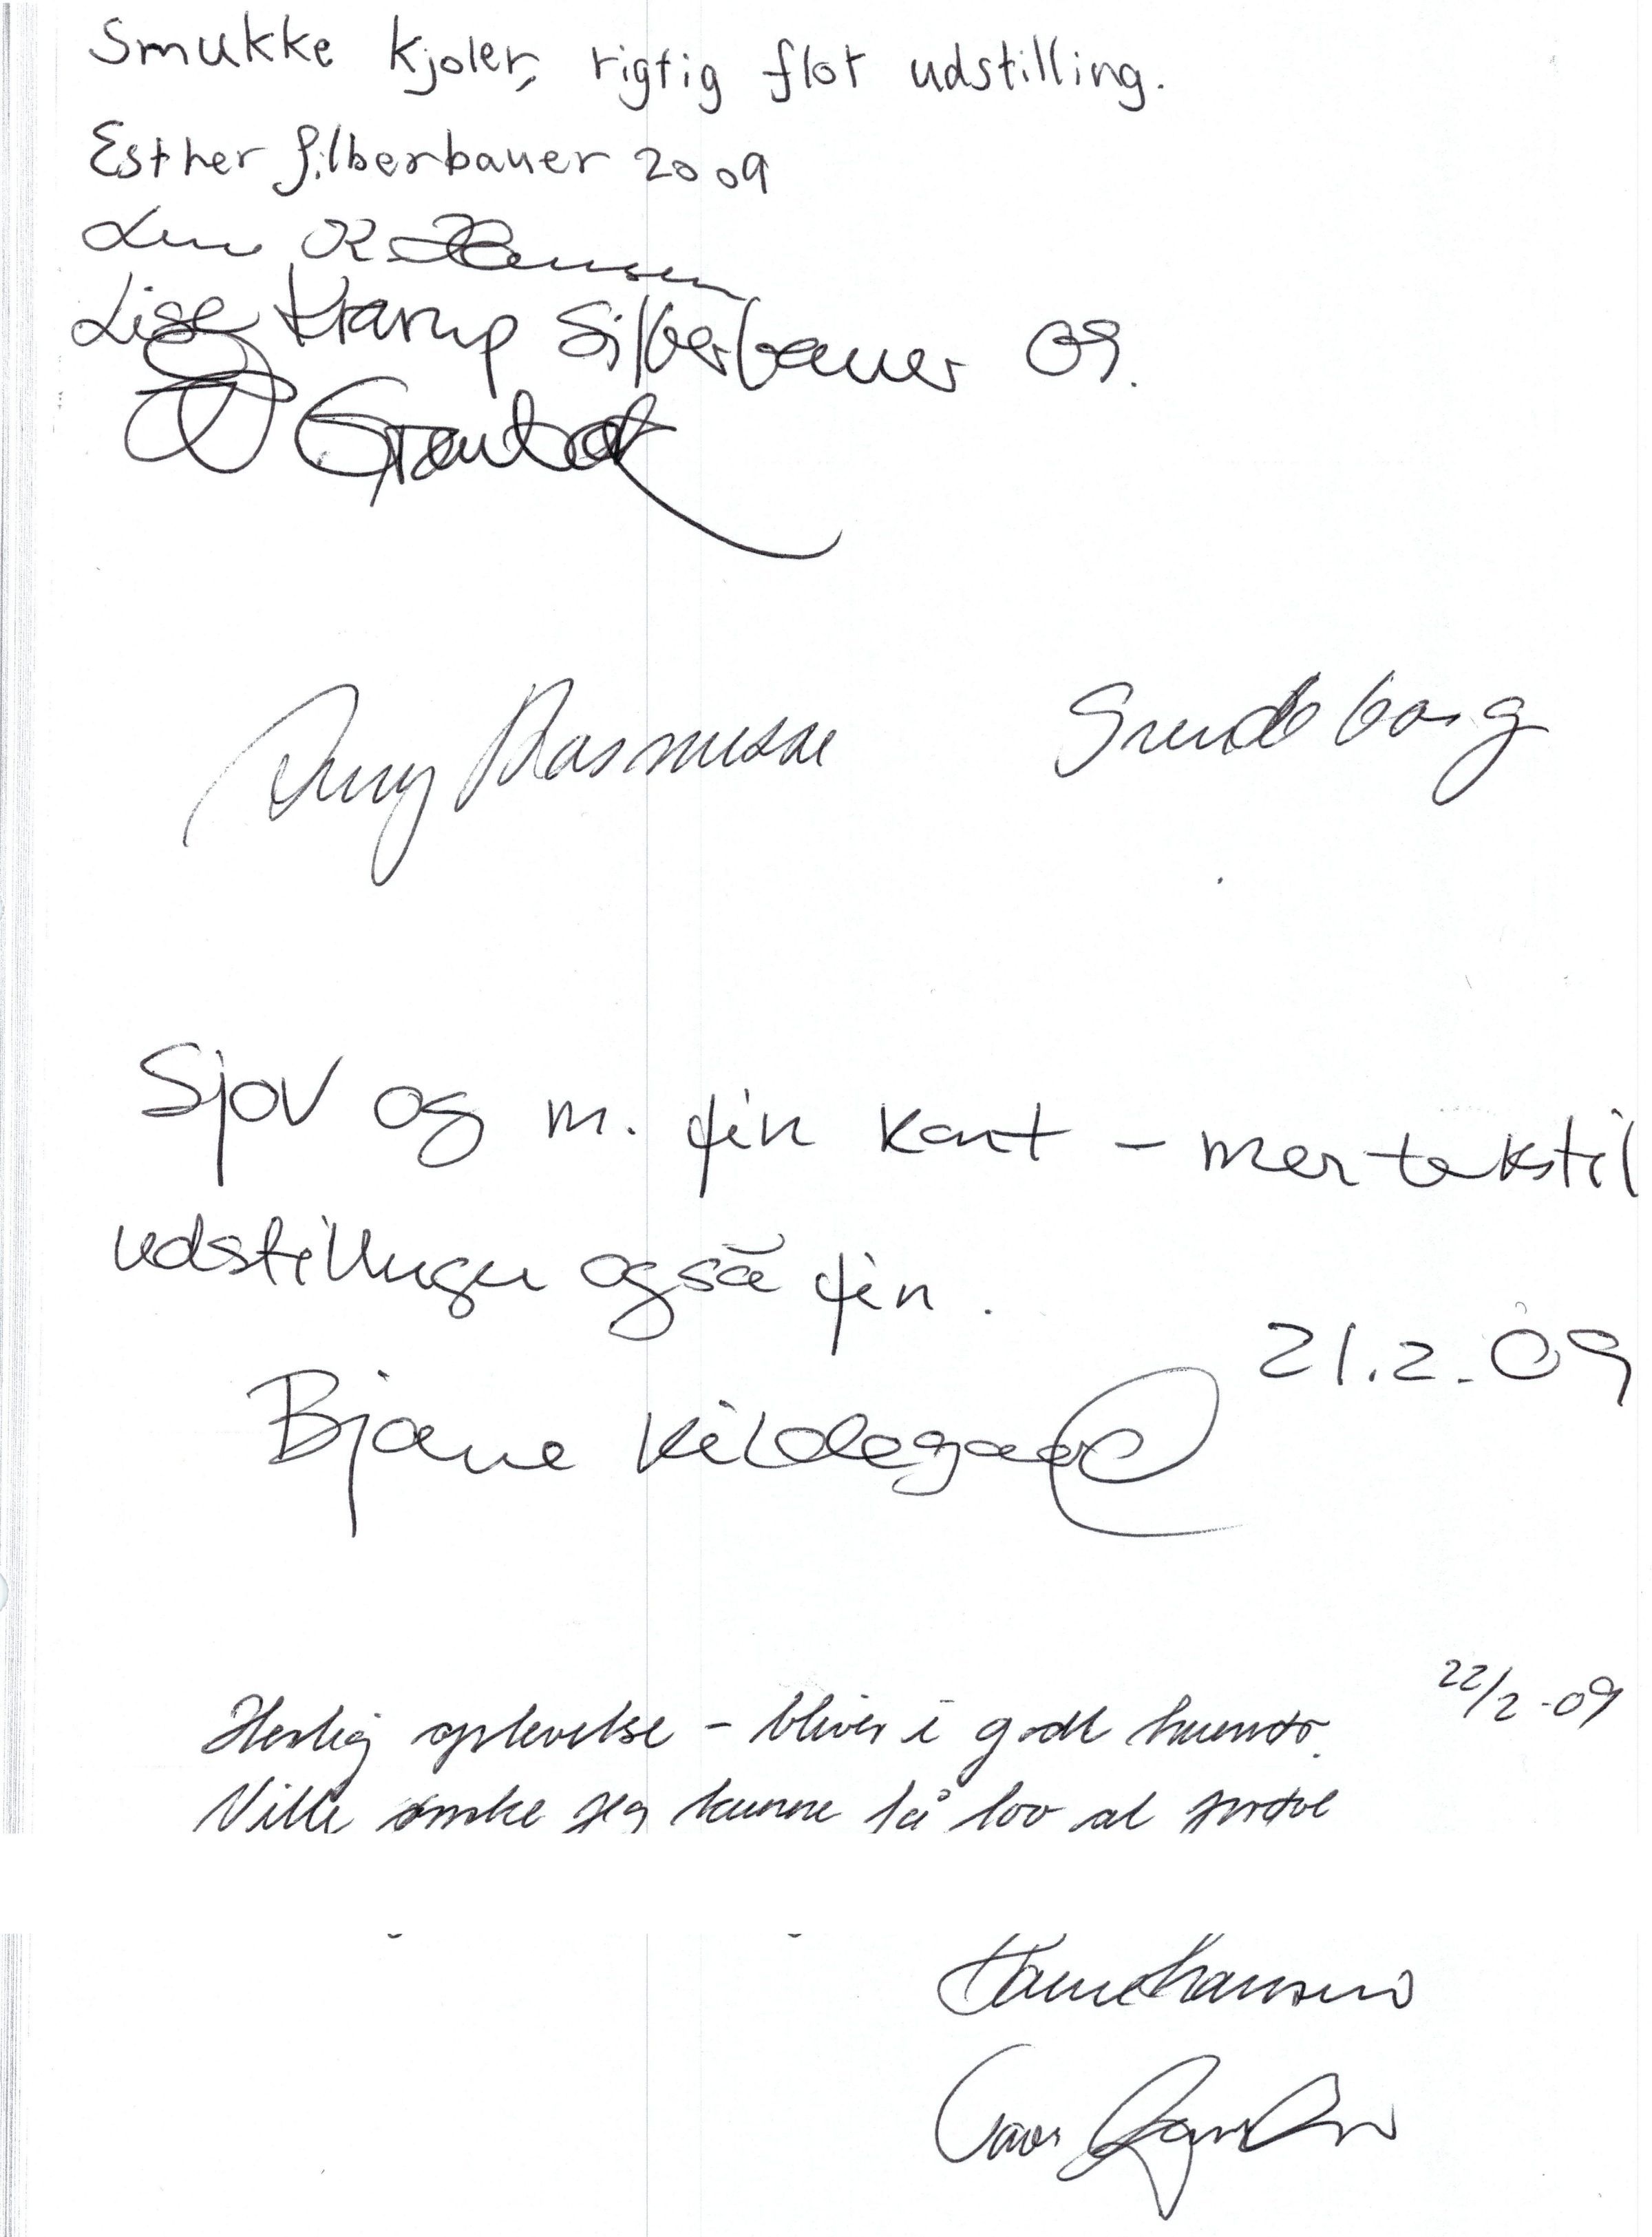 Smukke kjoler, rigtig flot udstilling.
Esther Silberbauer 2009
K Hansen
Lise Krarup Silberbauer 09.
Rasmussen Svendborg
Sjov og m. fin kant – mer tekstil
udstillinger også fin.
21.2.09
Bjarne Kildegaard
22/2-09
Herlig oplevelse – bliver i godt humør.
Ville ønske jeg kunne få lov at prøve
Hanne Hansen